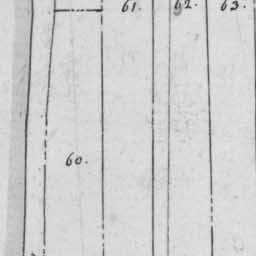 61. 62. 63.
60.